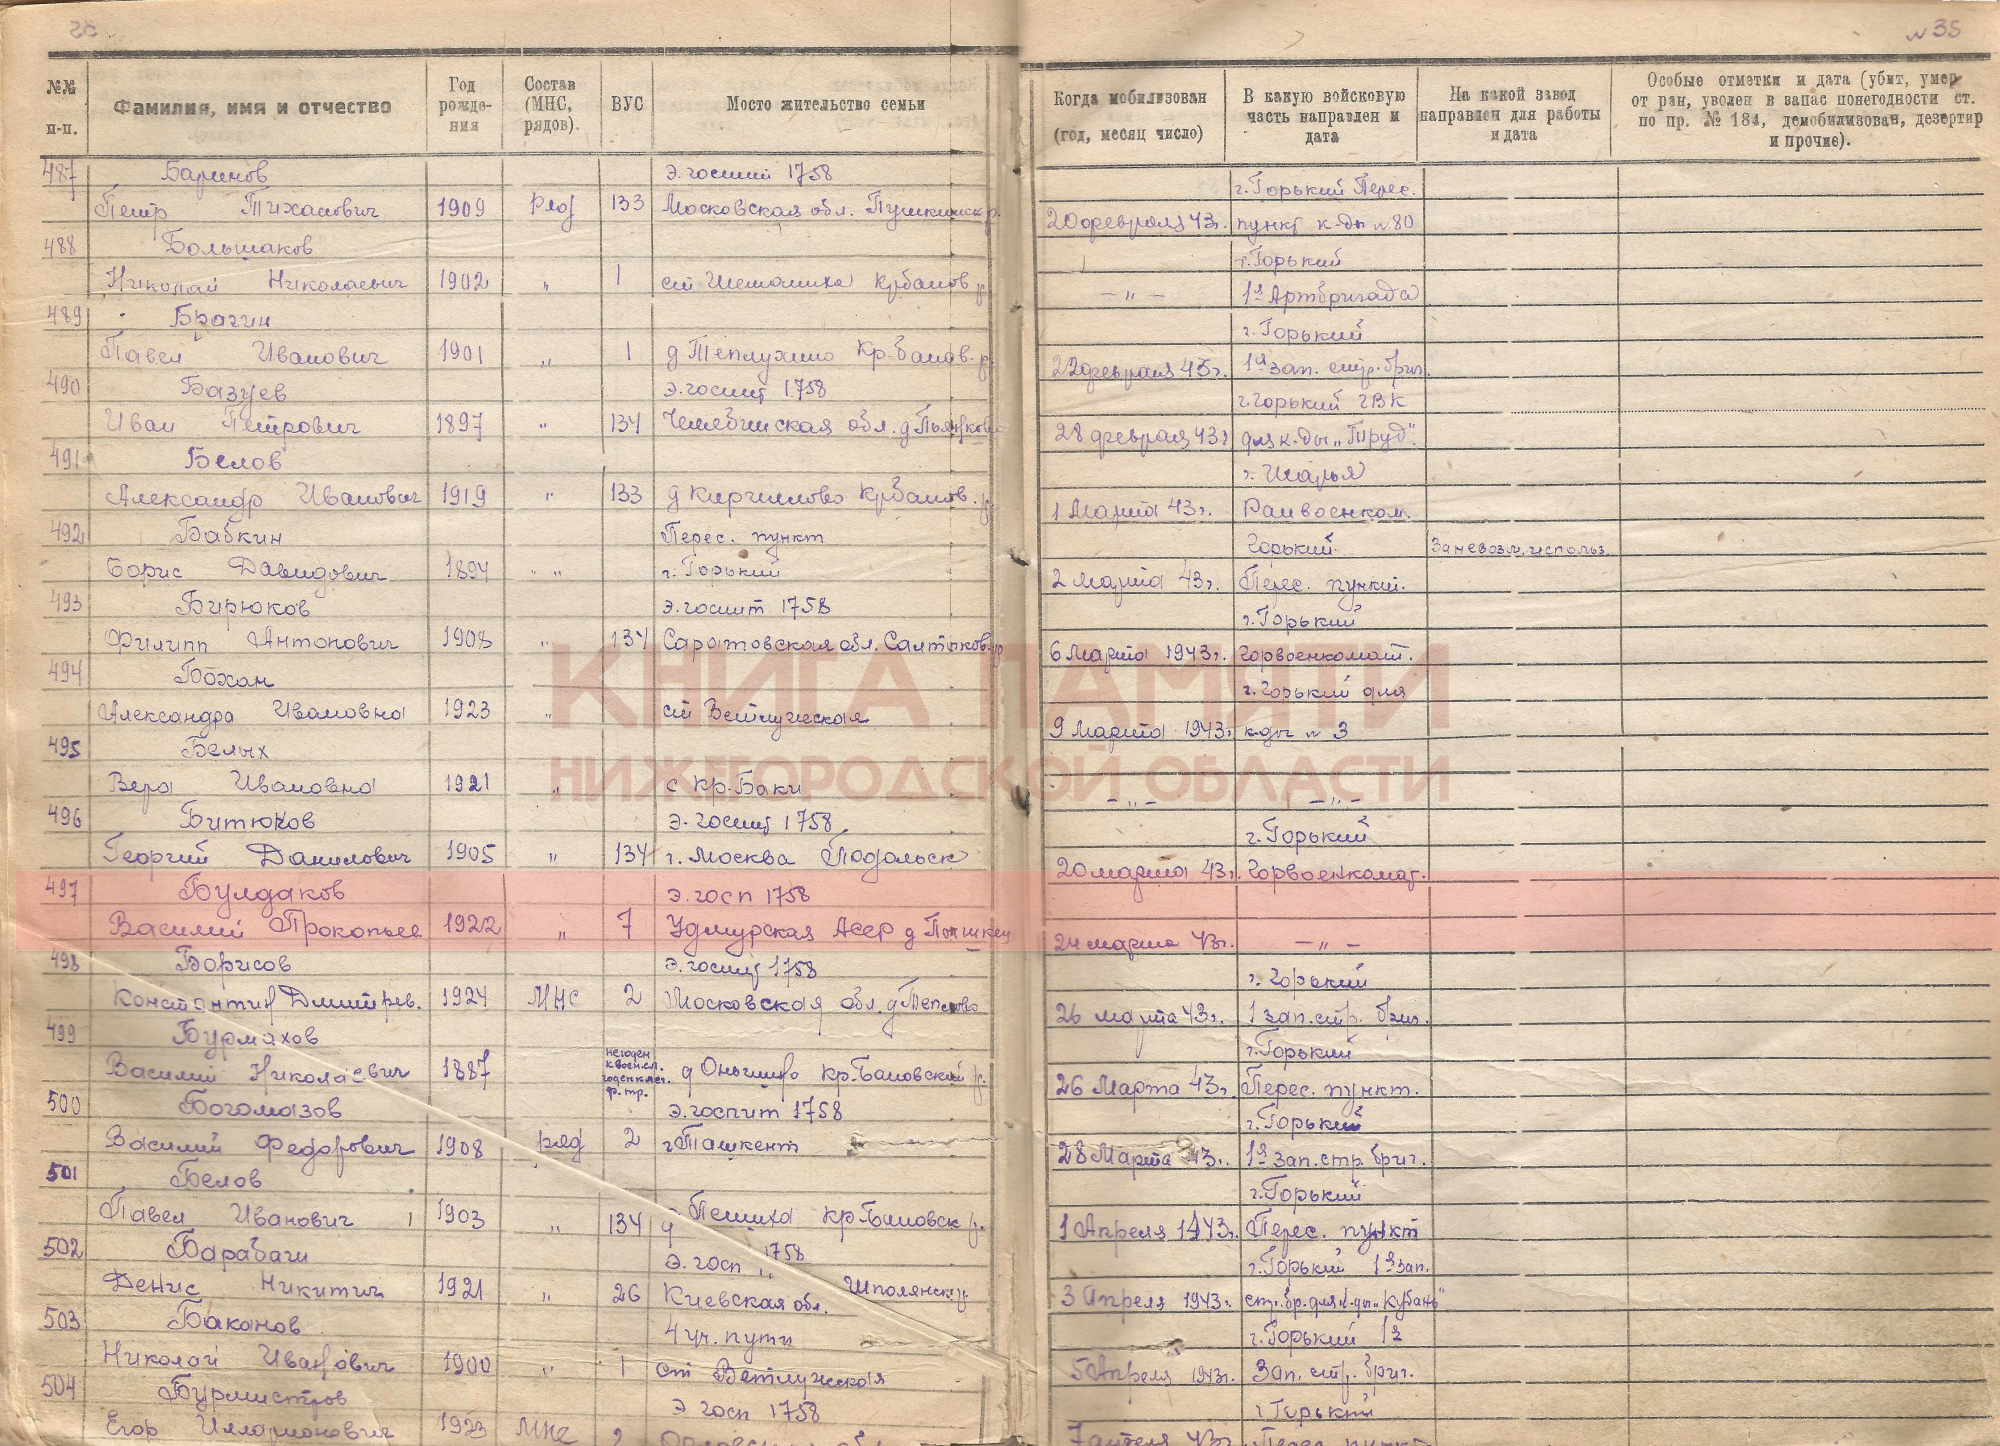 № 35
№№ п-п.
Фамилия, имя и отчество
Год рожде-ния
Состав (МНС, рядов).
ВУС
Мосто жительство семьи
Когда мобилизован (год, месяц число)
В какую войсковую часть направлен и дата
На какой завод направлен для работы и дата
Особые отметки и дата (убит, умер от ран, уволен в запас понегодности ст. по пр. № 184, демобилизован, дезертир и прочие).
487 Баринов э.госпит 1758
г. Горький Перес.
Петр Тиханович 1909 Ряд 133 Московская обл. Пушкинск р.
20 февраля 43г. пункт к-ды №80
488 Большаков
г. Горький
Николай Николаевич 1902 " 1 ст Шеманиха Крбаков р.
— " — 1я Артбригада
489 Брагин
г. Горький
Павел Иванович 1901 " 1 д Теплухино Кр-баков. р.
22 февраля 43г. 1я зап. стр. бриг.
490 Базуев э.госпит 1758
г. Горький ГВК
Иван Петрович 1897 " 134 Челябинская обл. д
28 февраля 43г для к-ды "Труд".
491 Белов
г. Шарья
Александр Иванович 1919 " 133 д Кириллово Крбаков. р.
1 Марта 43г. Раивоенком.
492 Бабкин Перес. пункт
Горький Заневозм. использ.
Борис Давидович 1894 " " г. Горький
2 марта 43г. Перес. пункт.
493 Бирюков э.госпит 1758
г. Горький
Филипп Антонович 1908 " 134 Саратовская обл. Салтыков р
6 Марта 1943г. Горвоенкомат.
494 Бохан
г. Горький для
Александра Ивановна 1923 " ст Ветлужская
9 Марта 1943г к-ды № 3
495 Белых
Вера Ивановна 1921 " с Кр. Баки
— " — — " —
496 Битюков э. госпит 1758
г. Горький
Георгий Данилович 1905 " 134 г. Москва Подольск
20 марта 43г. Горвоенкомат.
497 Булдаков э. госп 1758
Василий Прокопьев 1922 " 7 Удмурская Асср д
24 марта 43г. — " —
498 Борисов э. госпит 1758
г. Горький
Константин Дмитрев. 1924 МНС 2 Московская обл. д
26 марта 43г. 1 зап. стр. бриг.
499 Бурмахов
г. Горький
Василий Николаевич 1887 негоден к воен.сл. годен к нест. ф. тр. д Кр.Баковский р.
26 Марта 43г. Перес. пункт.
500 Богомазов э. госпит 1758
г. Горький
Василий Федорович 1908 ряд 2 г Ташкент
28 Марта 43г. 1я зап. стр. бриг.
501 Белов
г. Горький
Павел Иванович 1903 " 134 Кр.Баковск р.
1 Апреля 1943г. Перес. пункт
502 Барабаги э. госп 1758
г. Горький 1я зап.
Денис Никитич 1921 " 26 Киевская обл. Шполянск р.
3 Апреля 1943г. стр. бр. для к-ды "Кубань"
503 Баканов 4 уч. пути
г. Горький 1я
Николай Иванович 1900 " 1 ст Ветлужская
5 Апреля 1943г. Зап. стр. бриг.
504 Бурмистров э госп 1758
г Горький
Егор Илларионович 1923 МНС 2
7 апреля 43г Перес. пункт
КНИГА ПАМЯТИ
НИЖЕГОРОДСКОЙ ОБЛАСТИ